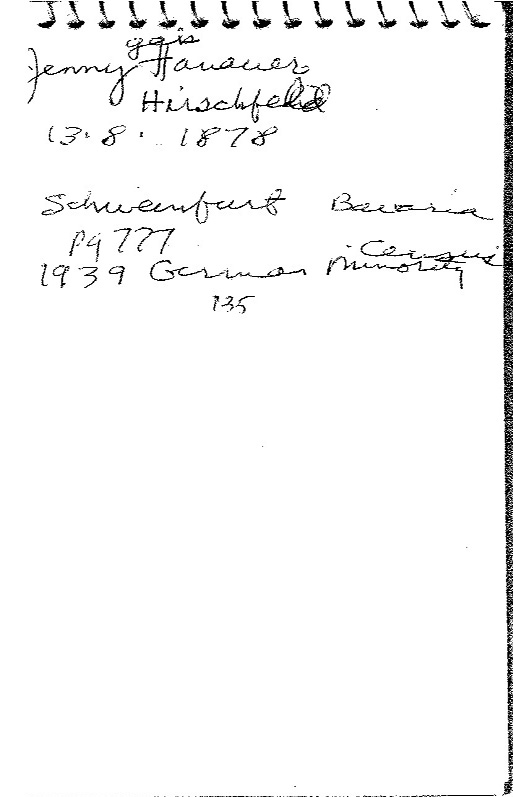 ggis
Jenny Hanauer
Hirschfeld
13. 8. 1878
Schweinfurt Bavaria
Pg 777
Census
1939 German Minority
135